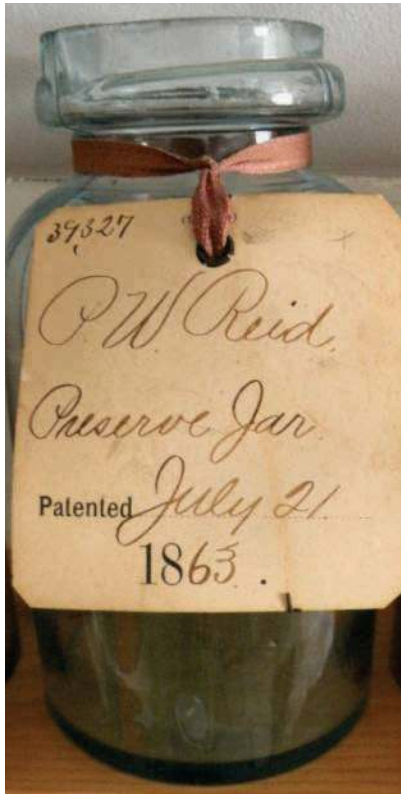 39,327
P. W Reid.
Preserve Jar.
Patented July 21.
1863.